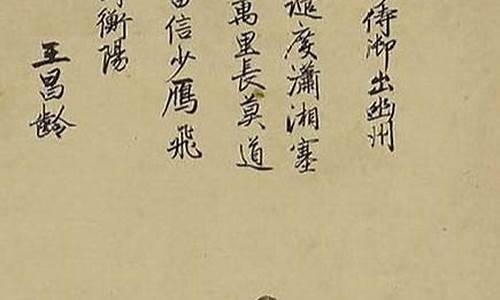 侍御出幽州
譴度瀟湘塞
萬里長莫道
信少鴈飛
衡陽
王昌齡